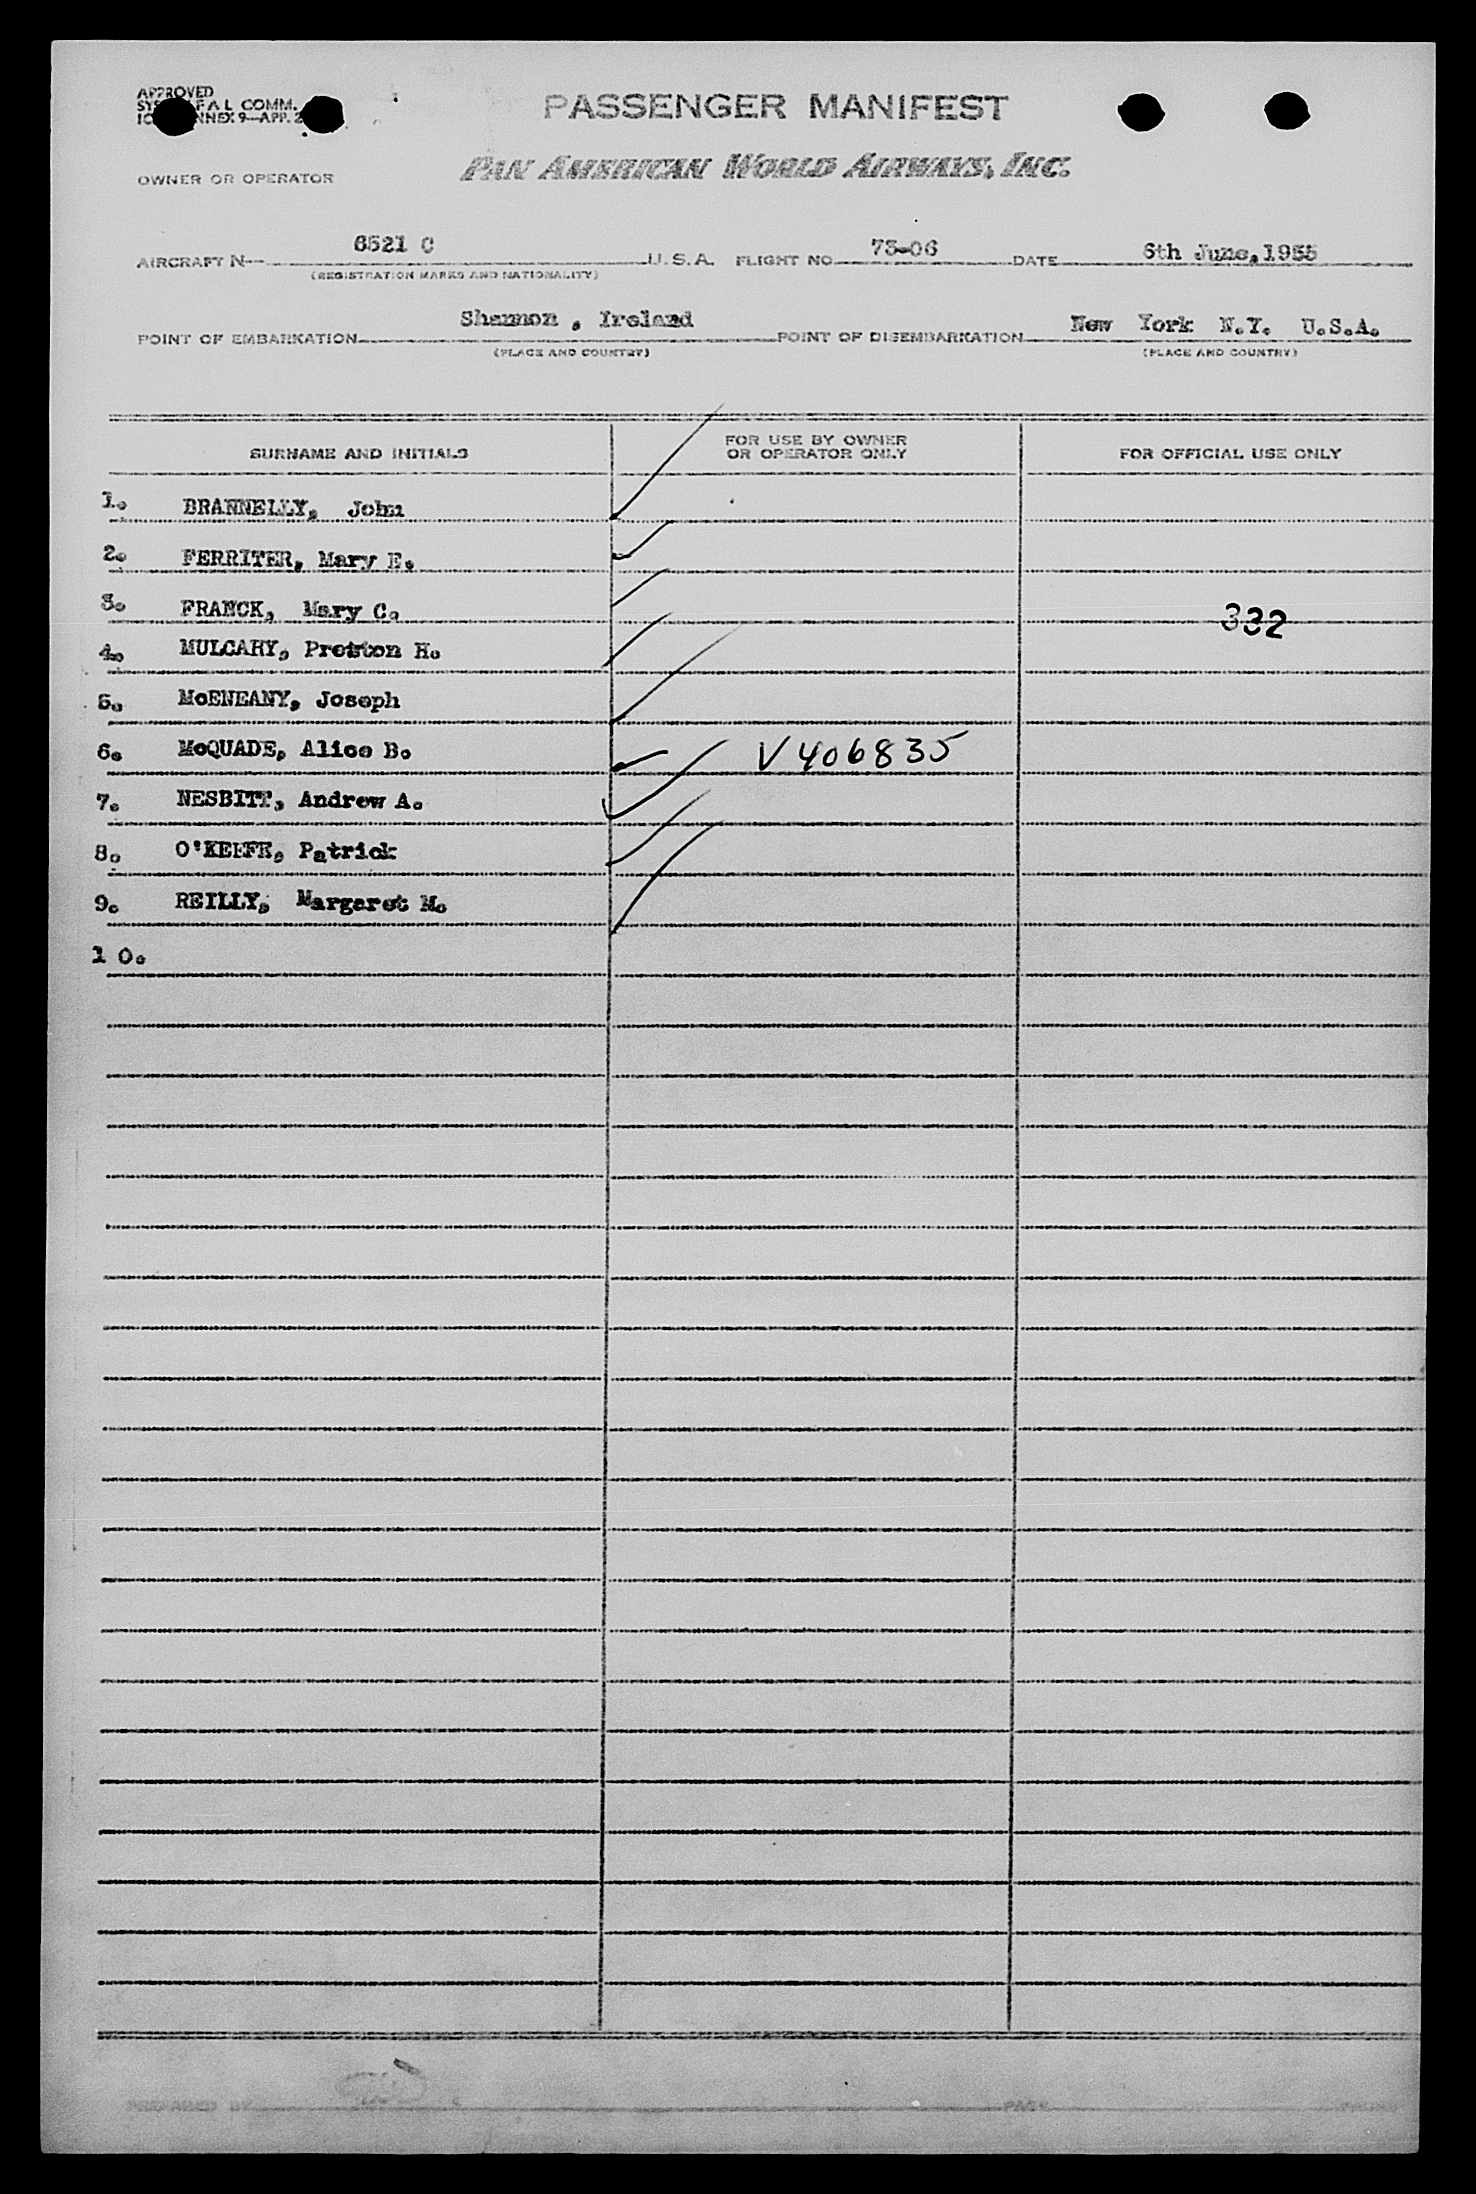 APPROVED
FAL COMM.
ANNEX 9—APP. 2
PASSENGER MANIFEST
OWNER OR OPERATOR
PAN AMERICAN WORLD AIRWAYS, INC.
AIRCRAFT N— 6521 C U.S.A. FLIGHT NO 73-06 DATE 6th June, 1955
(REGISTRATION MARKS AND NATIONALITY)
POINT OF EMBARKATION Shannon , Ireland POINT OF DISEMBARKATION New York N.Y. U.S.A.
(PLACE AND COUNTRY) (PLACE AND COUNTRY)
SURNAME AND INITIALS FOR USE BY OWNER OR OPERATOR ONLY FOR OFFICIAL USE ONLY
1. BRANNELLY, John
2. FERRITER, Mary E.
3. FRANCK, Mary C. 332
4. MULCAHY, Preston H.
5. McENEANY, Joseph
6. McQUADE, Alice B. V406835
7. NESBITT, Andrew A.
8. O'KEEFE, Patrick
9. REILLY, Margaret M.
1 0.
PREPARED BY PAGE